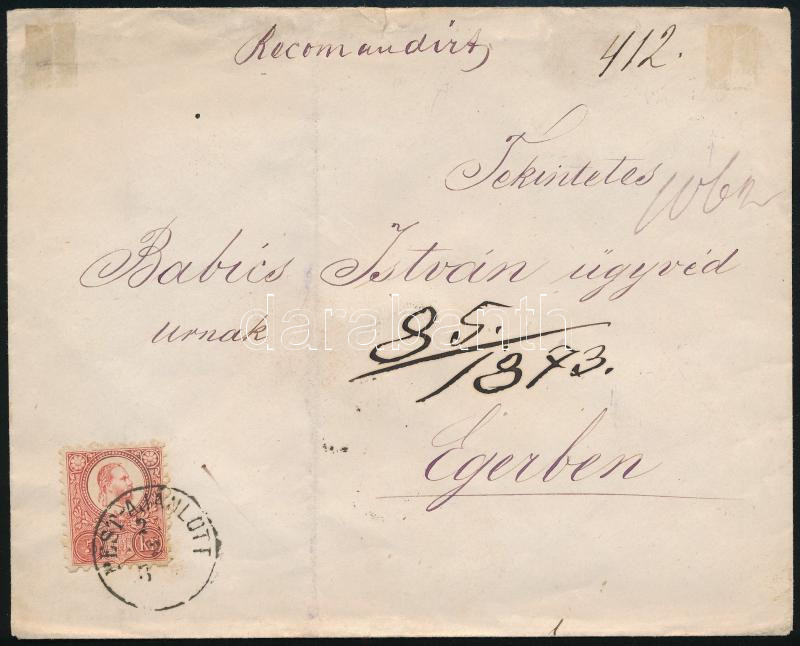 Recomandirt
412.
Tekintetes
Babics István ügyvéd
urnak
85./1873.
Egerben
PEST AJÁNLOTT
darabanth